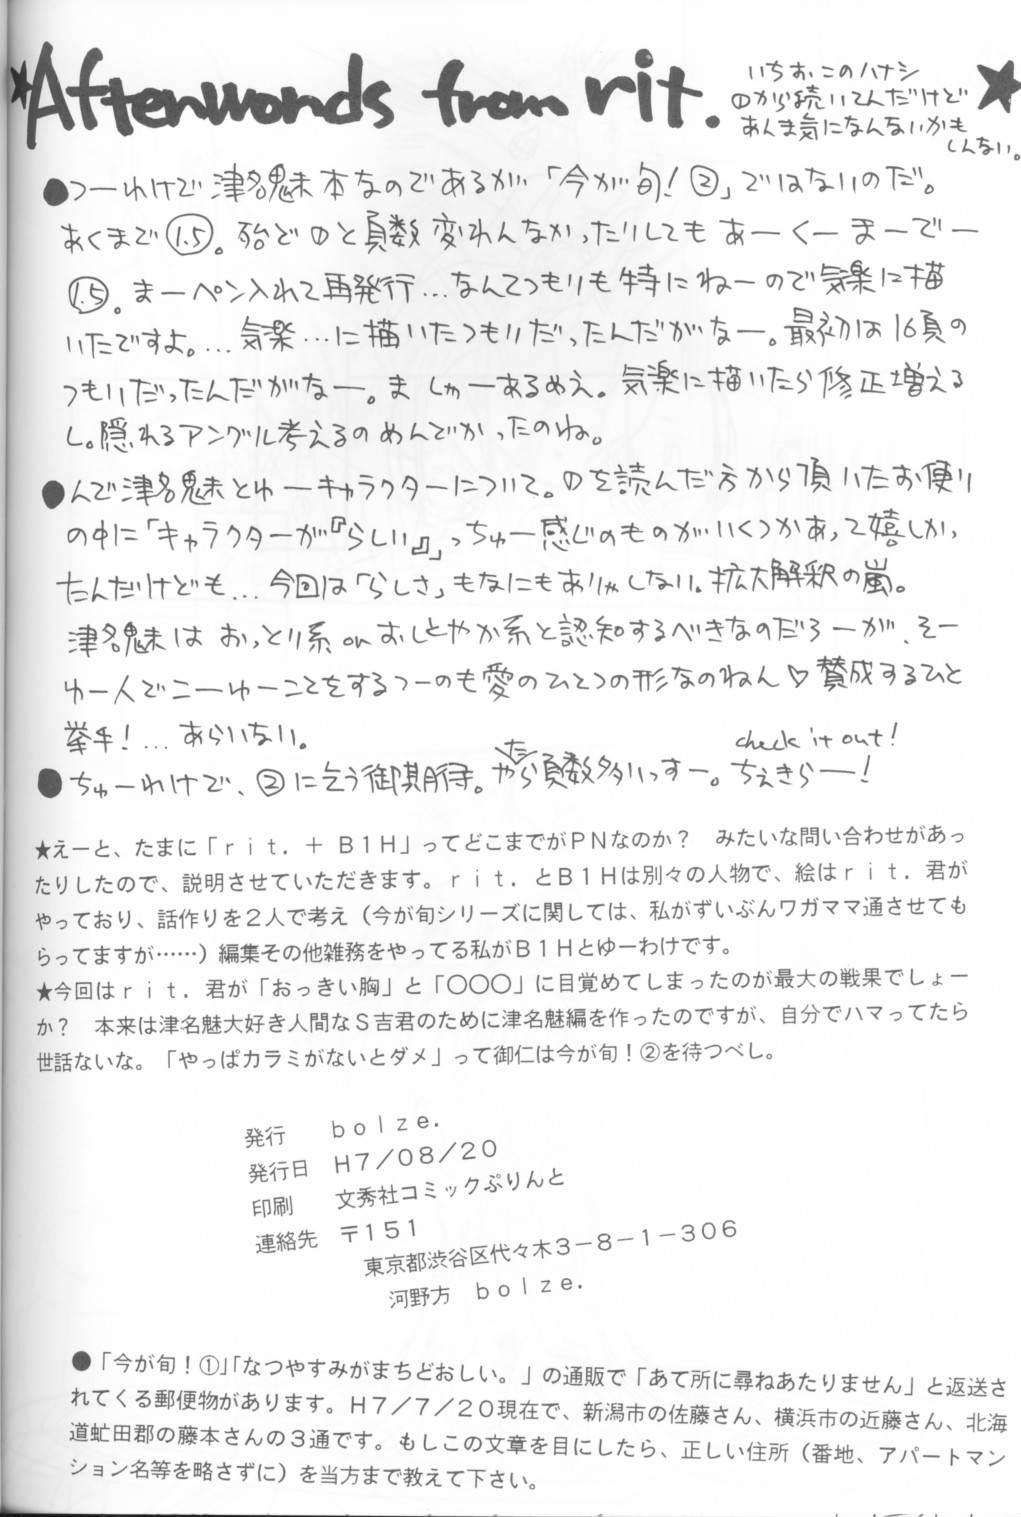 ★Afterwords from rit.★
いちお、このハナシ
①から続いてんだけど
あんま気になんないかも
しんない。
●つーわけで津名魅本なのであるが「今が旬!②」ではないのだ。
あくまで1.5。殆ど①と頁数変わんなかったりしてもあーくーまーでー
1.5。まーペン入れて再発行…なんてつもりも特にねーので気楽に描
いたですよ。…気楽…に描いたつもりだったんだがなー。最初は16頁の
つもりだったんだがなー。ましゅーあるめえ。気楽に描いたら修正増える
し。隠れるアングル考えるのめんでかったのね。
●んで津名魅とゆーキャラクターについて。①を読んだ方から頂いたお便り
の中に「キャラクターが『らしい』」っちゅー感じのものがいくつかあって嬉しかっ
たんだけども…今回は「らしさ」もなにもありゃしない。拡大解釈の嵐。
津名魅はおっとり系orおしとやか系と認知するべきなのだろーが、そー
ゆー人でこーゆーことをするつーのも愛のひとつの形なのねん♡賛成するひと
挙手!…あらいない。
●ちゅーわけで、②に乞う御期待。やたら頁数多いっすー。ちぇきらー!
check it out!
★えーと、たまに「rit.+B1H」ってどこまでがPNなのか? みたいな問い合わせがあっ
たりしたので、説明させていただきます。rit.とB1Hは別々の人物で、絵はrit.君が
やっており、話作りを2人で考え(今が旬シリーズに関しては、私がずいぶんワガママ通させても
らってますが……)編集その他雑務をやってる私がB1Hとゆーわけです。
★今回はrit.君が「おっきい胸」と「○○○」に目覚めてしまったのが最大の戦果でしょー
か? 本来は津名魅大好き人間なS吉君のために津名魅編を作ったのですが、自分でハマってたら
世話ないな。「やっぱカラミがないとダメ」って御仁は今が旬!②を待つべし。
発行 bolze.
発行日 H7/08/20
印刷 文秀社コミックぷりんと
連絡先 〒151
東京都渋谷区代々木3-8-1-306
河野方 bolze.
●「今が旬!①」「なつやすみがまちどおしい。」の通販で「あて所に尋ねあたりません」と返送さ
れてくる郵便物があります。H7/7/20現在で、新潟市の佐藤さん、横浜市の近藤さん、北海
道虻田郡の藤本さんの3通です。もしこの文章を目にしたら、正しい住所(番地、アパートマン
ション名等を略さずに)を当方まで教えて下さい。